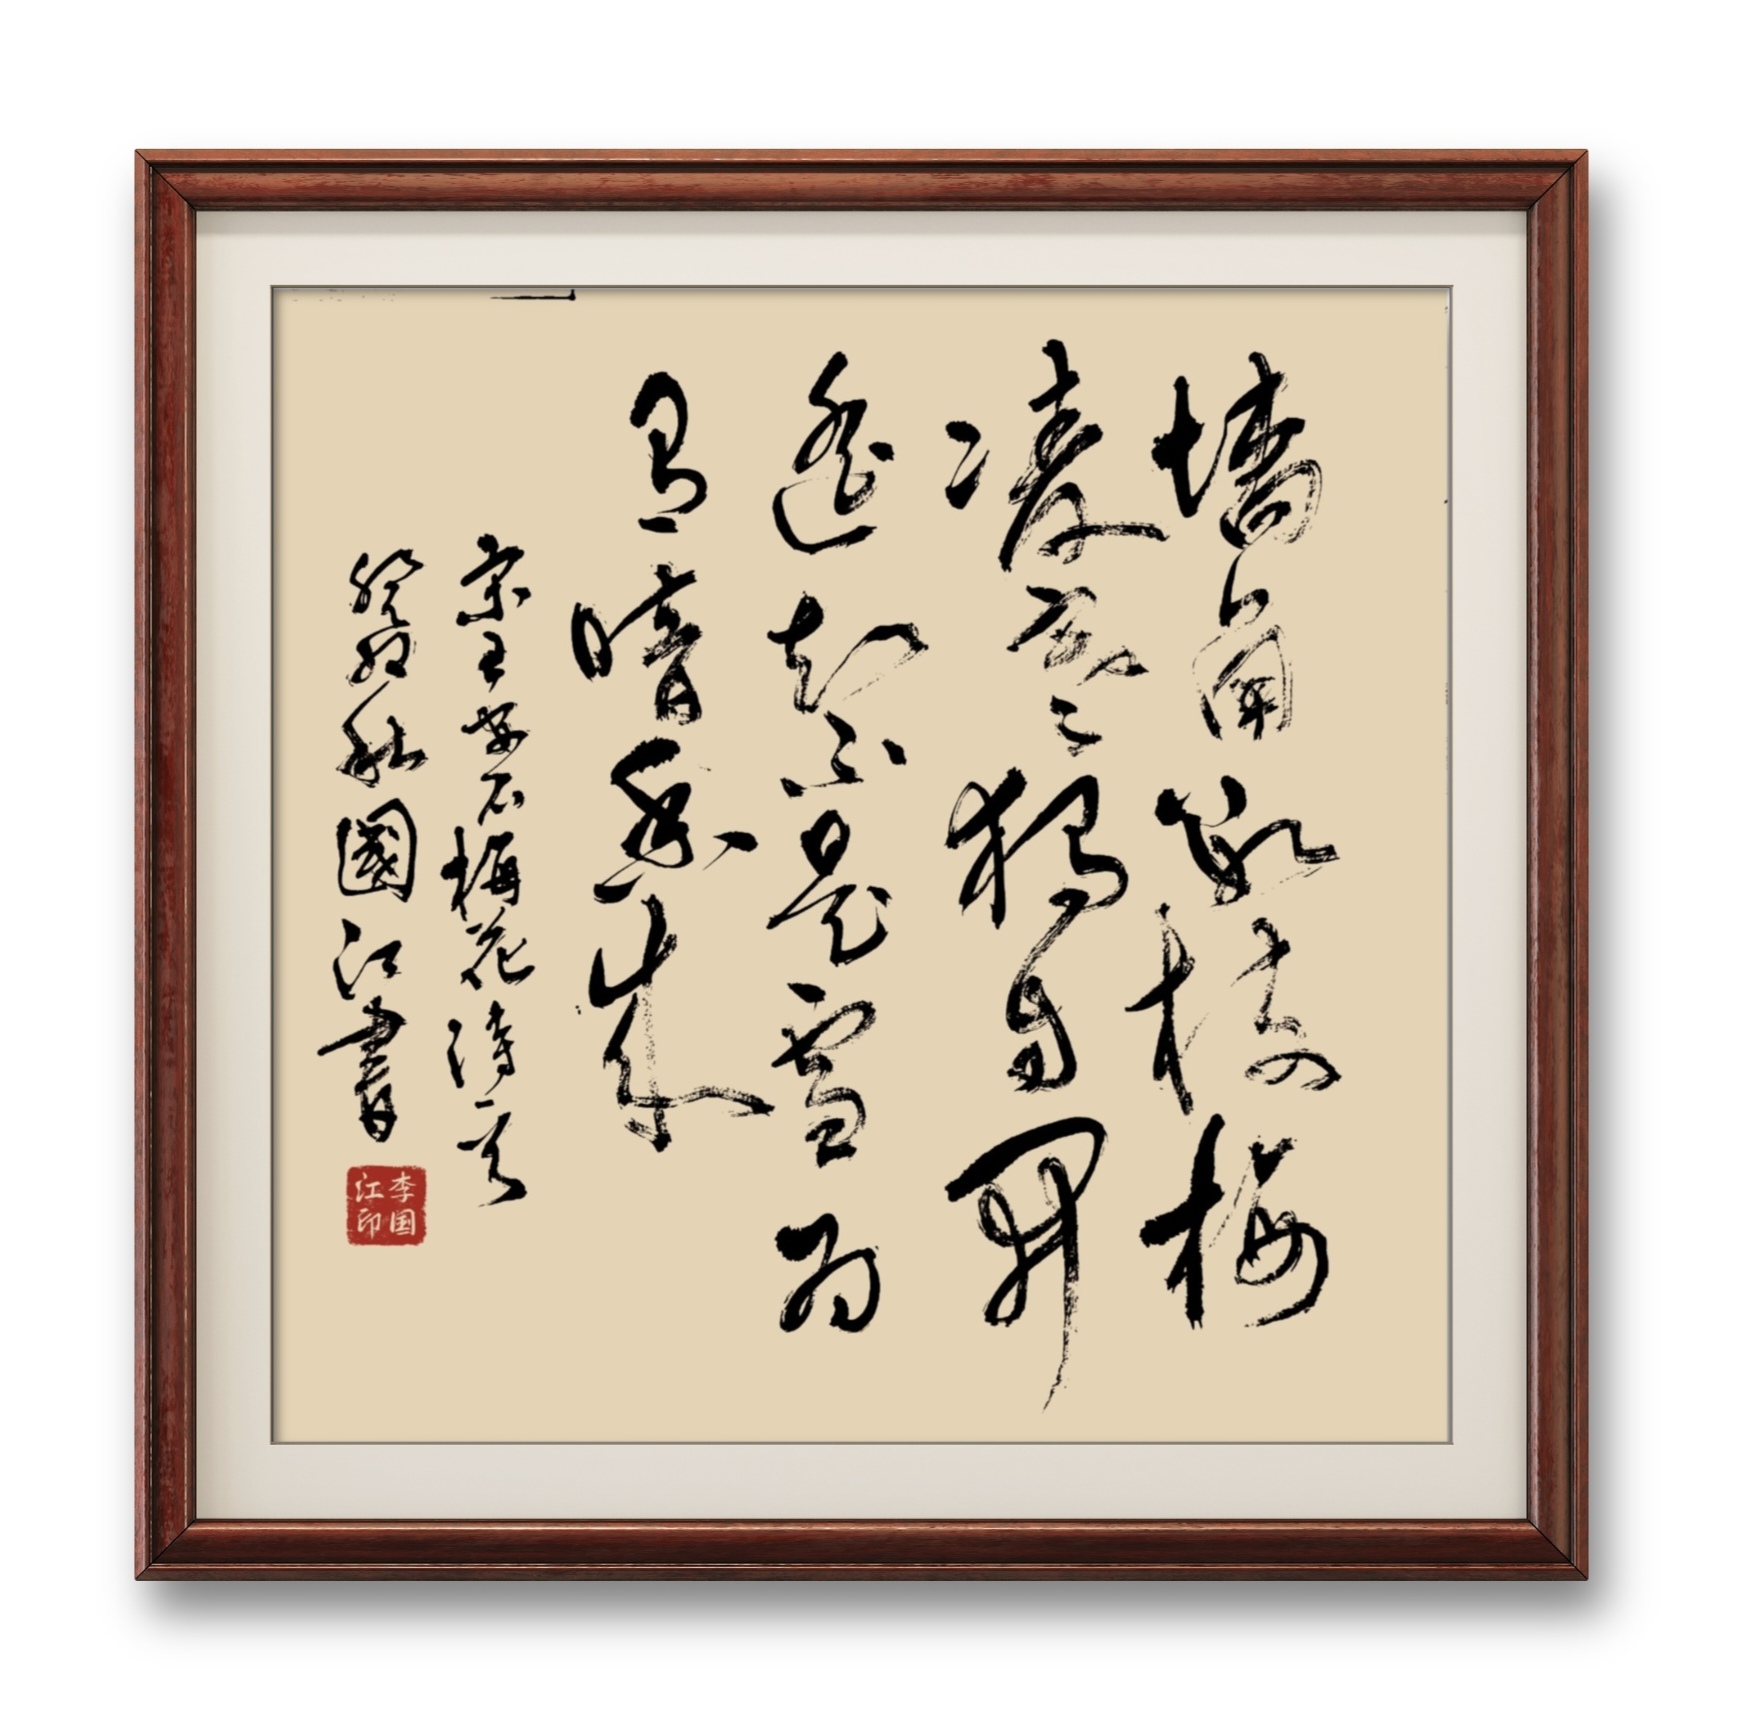 墙角数枝梅
凌寒独自開
遥知不是雪为
有暗香来
宋王安石梅花诗一首
癸卯秋國江書
李国
江印